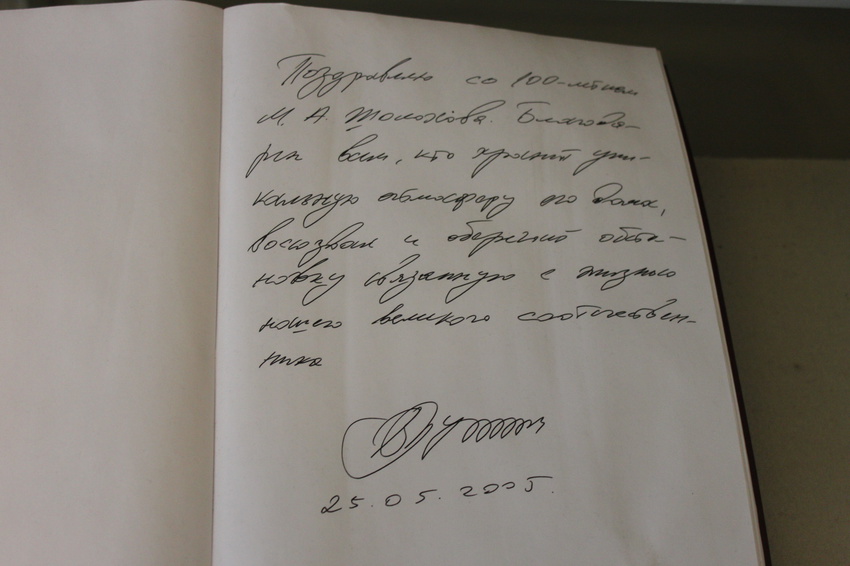 Поздравляю со 100-летием
М. А. Шолохова. Благода-
рен всем, кто хранит уни-
кальную атмосферу его дома,
воссоздал и оберегает обста-
новку связанную с жизнью
нашего великого соотечествен-
ника
25.05.2005.